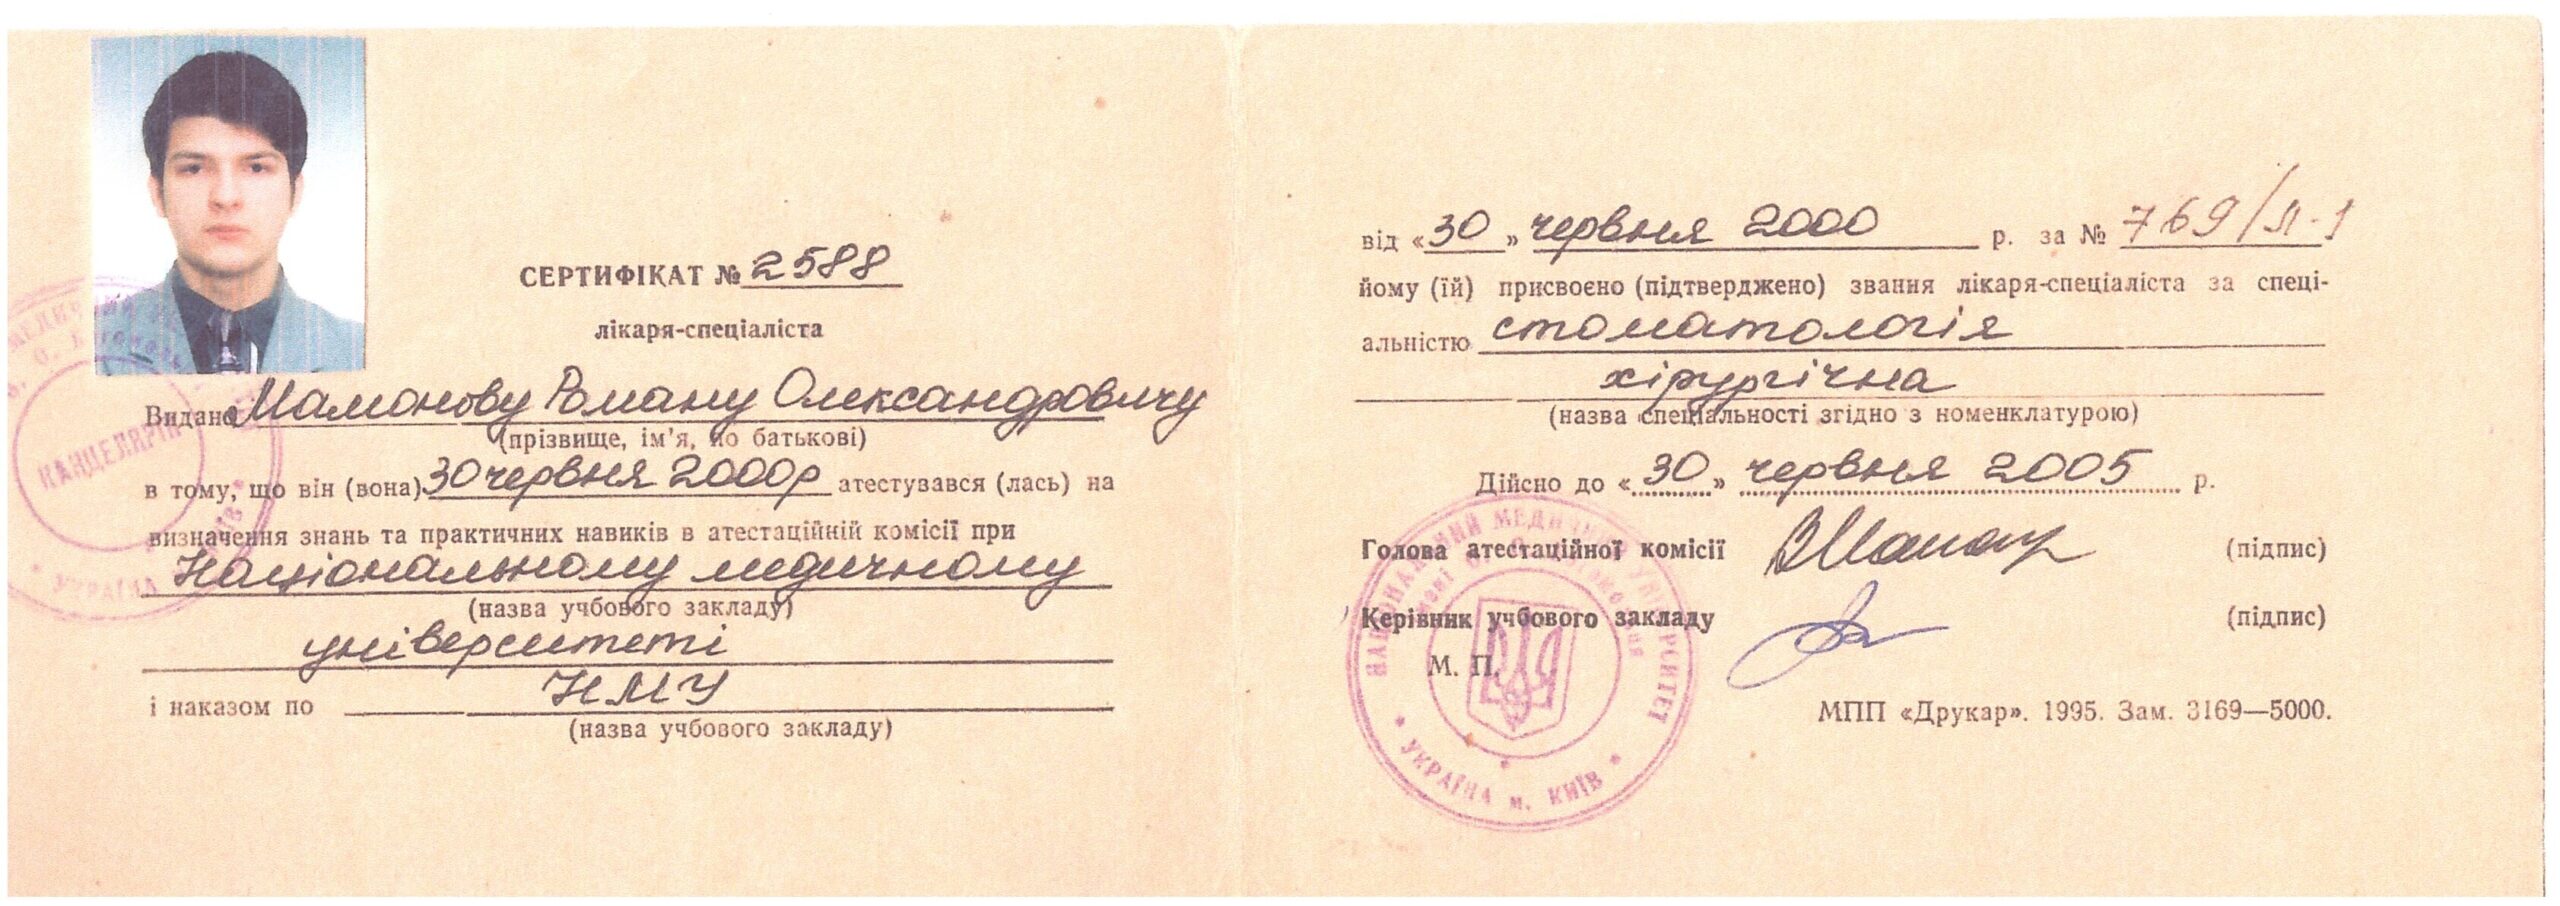 СЕРТИФІКАТ № 2588
лікаря-спеціаліста
Видано Мамонову Роману Олександровичу
(прізвище, ім'я, по батькові)
в тому, що він (вона) 30 червня 2000р атестувався (лась) на
визначення знань та практичних навиків в атестаційній комісії при
Національному медичному
(назва учбового закладу)
університеті
і наказом по НМУ
(назва учбового закладу)
КАНЦЕЛЯРІЯ
УКРАЇНА
від «30» червня 2000 р. за № 769/Л-1
йому (їй) присвоєно (підтверджено) звання лікаря-спеціаліста за спеці-
альністю стоматологія
хірургічна
(назва спеціальності згідно з номенклатурою)
Дійсно до «30» червня 2005 р.
Голова атестаційної комісії (підпис)
Керівник учбового закладу (підпис)
М. П.
МПП «Друкар». 1995. Зам. 3169—5000.
НАЦІОНАЛЬНИЙ МЕДИЧНИЙ УНІВЕРСИТЕТ
УКРАЇНА м. КИЇВ